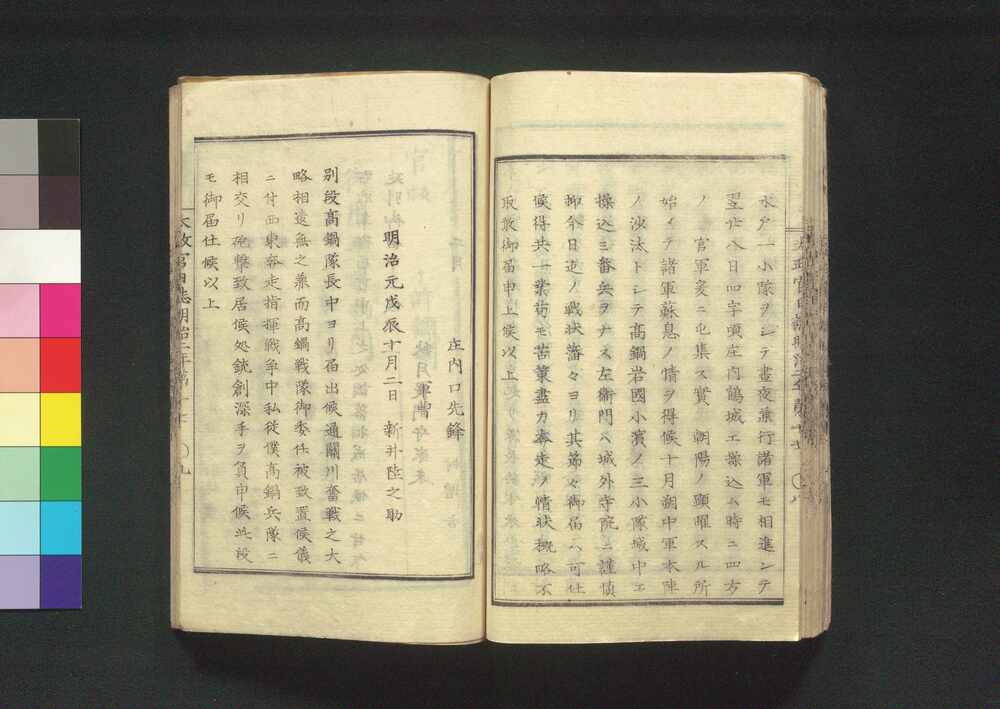 水戸一小隊ヲシテ晝夜兼行諸軍モ相進ンテ
翌廿八日四字頃庄内鶴城エ操込ム時ニ四方
ノ 官軍爰ニ屯集ス實 朝陽ノ顕曜スル所
始メテ諸軍蘇息ノ情ヲ得候十月朔中軍本陣
ノ沙汰トシテ髙鍋岩國小濱ノ三小隊城中エ
操込三番兵ヲナス左衛門ハ城外寺院ニ謹慎
抑今日迄ノ戦状藩々ヨリ其節々御届ハ可仕
候得共一業苦モ苦策盡力奔走ノ情状概略不
取敢御届申上候以上
庄内口先鋒
秋月軍曹
明治元戊辰十月二日 新井陸之助
別段髙鍋隊長中ヨリ届出候通關川奮戰之大
略相違無之兼而髙鍋戦隊御委任被致置候儀
ニ付西東奔走指揮戦争中私徒僕髙鍋兵隊ニ
相交リ砲撃致居候処銃創深手ヲ負申候此段
モ御届仕候以上
太政官日誌明治二年第十七 〇九